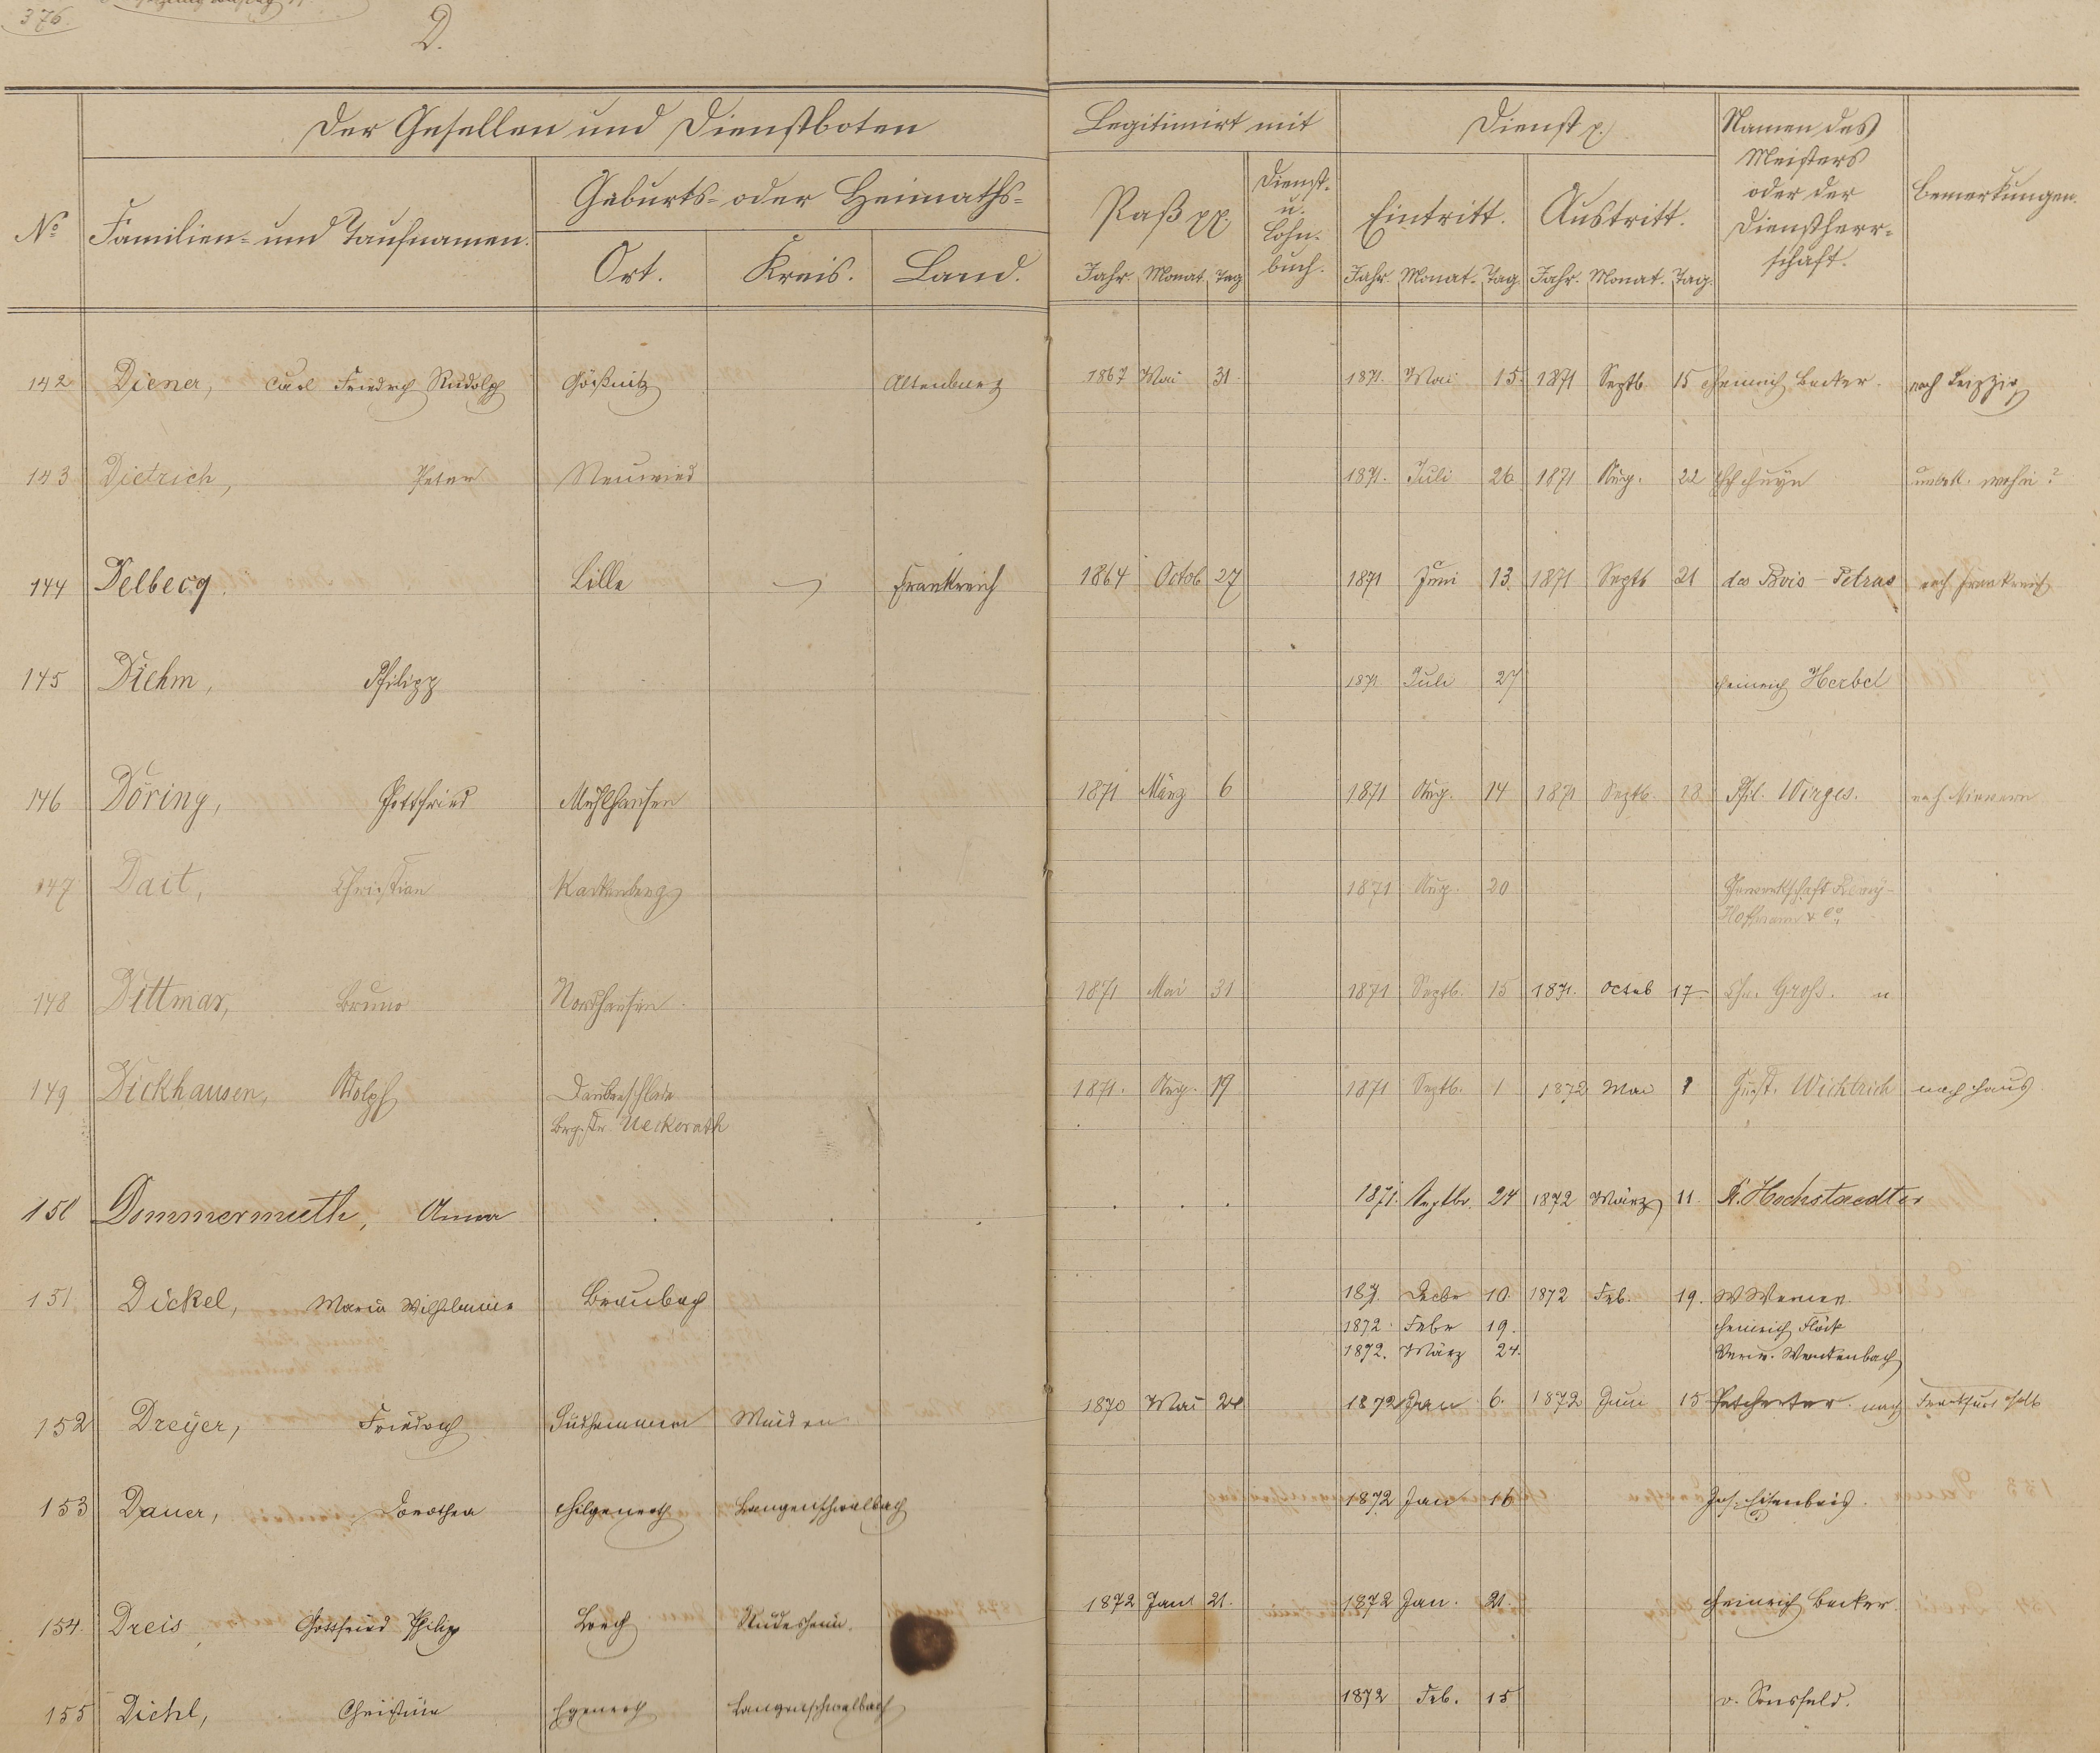 376.
D.
Der Gesellen und Dienstboten
Legitimirt mit
Dienst p.
Namen des
Meisters
oder der
Dienstherr-
schaft.
Bemerkungen.
No
Familien- und Taufnamen.
Geburts- oder Heimaths-
Ort. Kreis. Land.
Paß pp.
Dienst-
u.
Lohn-
buch.
Eintritt. Austritt.
Jahr. Monat. Tag Jahr. Monat. Tag. Jahr. Monat. Tag.
142 Diener, Carl Friedrich Rudolph Gößnitz Altenburg 1867 Mai 31. 1871. Mai 15. 1871 Septb. 15 Heinrich Becker. nach Leipzig
143 Dietrich, Peter Neuwied 1871. Juli 26 1871 Aug. 22 unbek. wohin?
144 Delbecq. Lille Frankreich 1864 Octob 27 1871 Juni 13. 1871 Septb 21 des Bois-Petras nach Frankreich
145 Diehm, Philipp 1871 Juli 27 Heinrich Herbel
146 Döring, Gottfried Mühlhausen 1871 März 6 1871 Aug. 14 1871 Septb. 18 Phil. Wirges. nach Nievern
147 Dait, Christian 1871 Aug. 20 Gewerkschaft
Hoffmann & Co.
148 Dittmar, Bruno Nordhausen. 1871 Mai 31 1871 Septb. 15 1871. Octob 17 Chr. Groß.
149 Dickhausen, Adolph 1871. Aug. 19 1871 Septb. 1 1872 Mai 1 Gust. Wichtrich nach Haus
Uckerath
150 Dommermuth, Anna 1871. Septbr. 24 1872 März 11. A. Hochstaedter
151. Dickel, Maria Wilhelmine Braubach 187. Decbr 10. 1872 Feb. 19. W Werner.
1872. Febr 19. Heinrich Flöck
1872. März 24. Werkenbach
152 Dreyer, Friedrich Südhemmern Minden 1870 Mai 24 1872 Jan 6. 1872 Juni 15 nach Frankfurt
153 Dauer, Dorothea Hilgenroth Langenschwalbach 1872 Jan 16 Jos. Eisenbeis.
154. Dreis, Gottfried Philipp Lorch Rüdesheim. 1872 Jan 21. 1872 Jan. 21. Heinrich Becker.
155 Diehl, Christine Egenroth Langenschwalbach 1872 Feb. 15 v. Sonsfeld.